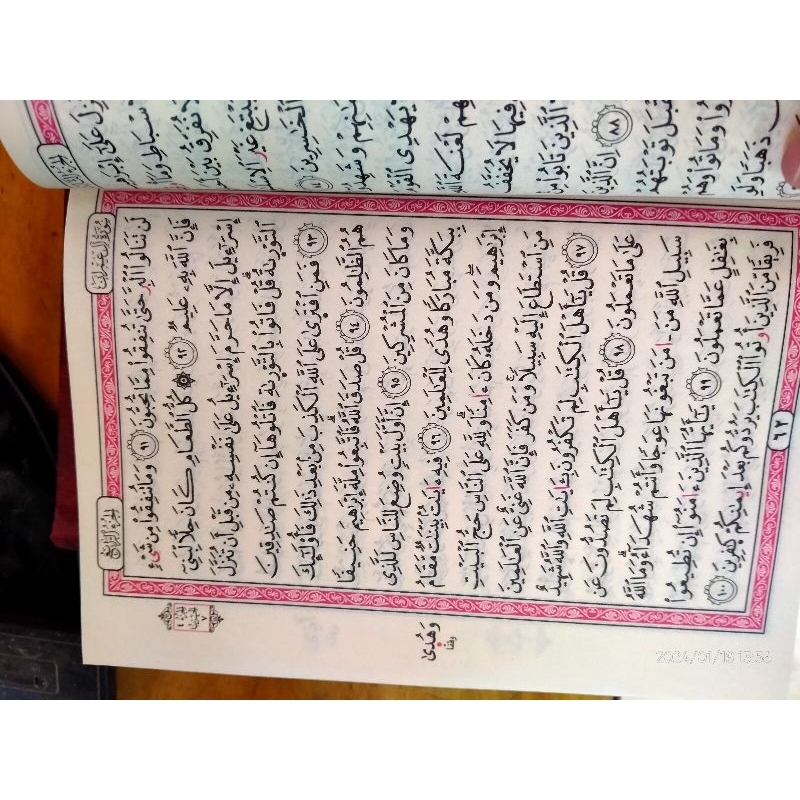 سُورَةُ آلِ عِمْرَانَ
الجزء الرابع
لَن تَنَالُوا۟ ٱلْبِرَّ حَتَّىٰ تُنفِقُوا۟ مِمَّا تُحِبُّونَ ٩١ وَمَا تُنفِقُوا۟ مِن شَىْءٍ
فَإِنَّ ٱللَّهَ بِهِۦ عَلِيمٌ ٩٢ ۞ كُلُّ ٱلطَّعَامِ كَانَ حِلًّا لِّبَنِىٓ
إِسْرَٰٓءِيلَ إِلَّا مَا حَرَّمَ إِسْرَٰٓءِيلُ عَلَىٰ نَفْسِهِۦ مِن قَبْلِ أَن تُنَزَّلَ
ٱلتَّوْرَىٰةُ قُلْ فَاتُوا۟ بِٱلتَّوْرَىٰةِ فَٱتْلُوهَآ إِن كُنتُمْ صَٰدِقِينَ
٩٣ فَمَنِ ٱفْتَرَىٰ عَلَى ٱللَّهِ ٱلْكَذِبَ مِنۢ بَعْدِ ذَٰلِكَ فَأُو۟لَٰٓئِكَ
هُمُ ٱلظَّٰلِمُونَ ٩٤ قُلْ صَدَقَ ٱللَّهُ فَٱتَّبِعُوا۟ مِلَّةَ إِبْرَٰهِيمَ حَنِيفًا
وَمَا كَانَ مِنَ ٱلْمُشْرِكِينَ ٩٥ إِنَّ أَوَّلَ بَيْتٍ وُضِعَ لِلنَّاسِ لَلَّذِى
بِبَكَّةَ مُبَارَكًا وَهُدًى لِّلْعَٰلَمِينَ ٩٦ فِيهِ ءَايَٰتٌۢ بَيِّنَٰتٌ مَّقَامُ
إِبْرَٰهِيمَ وَمَن دَخَلَهُۥ كَانَ ءَامِنًا وَلِلَّهِ عَلَى ٱلنَّاسِ حَجُّ ٱلْبَيْتِ
مَنِ ٱسْتَطَاعَ إِلَيْهِ سَبِيلًا وَمَن كَفَرَ فَإِنَّ ٱللَّهَ غَنِىٌّ عَنِ ٱلْعَٰلَمِينَ
٩٧ قُلْ يَٰٓأَهْلَ ٱلْكِتَٰبِ لِمَ تَكْفُرُونَ بِـَٔايَٰتِ ٱللَّهِ وَٱللَّهُ شَهِيدٌ
عَلَىٰ مَا تَعْمَلُونَ ٩٨ قُلْ يَٰٓأَهْلَ ٱلْكِتَٰبِ لِمَ تَصُدُّونَ عَن
سَبِيلِ ٱللَّهِ مَنْ ءَامَنَ تَبْغُونَهَا عِوَجًا وَأَنتُمْ شُهَدَآءُ وَمَا ٱللَّهُ
بِغَٰفِلٍ عَمَّا تَعْمَلُونَ ٩٩ يَٰٓأَيُّهَا ٱلَّذِينَ ءَامَنُوٓا۟ إِن تُطِيعُوا۟
فَرِيقًا مِّنَ ٱلَّذِينَ أُوتُوا۟ ٱلْكِتَٰبَ يَرُدُّوكُم بَعْدَ إِيمَٰنِكُمْ كَٰفِرِينَ ١٠٠
٦٢
وَهُدًى
وقفا
2024/01/19 13:56